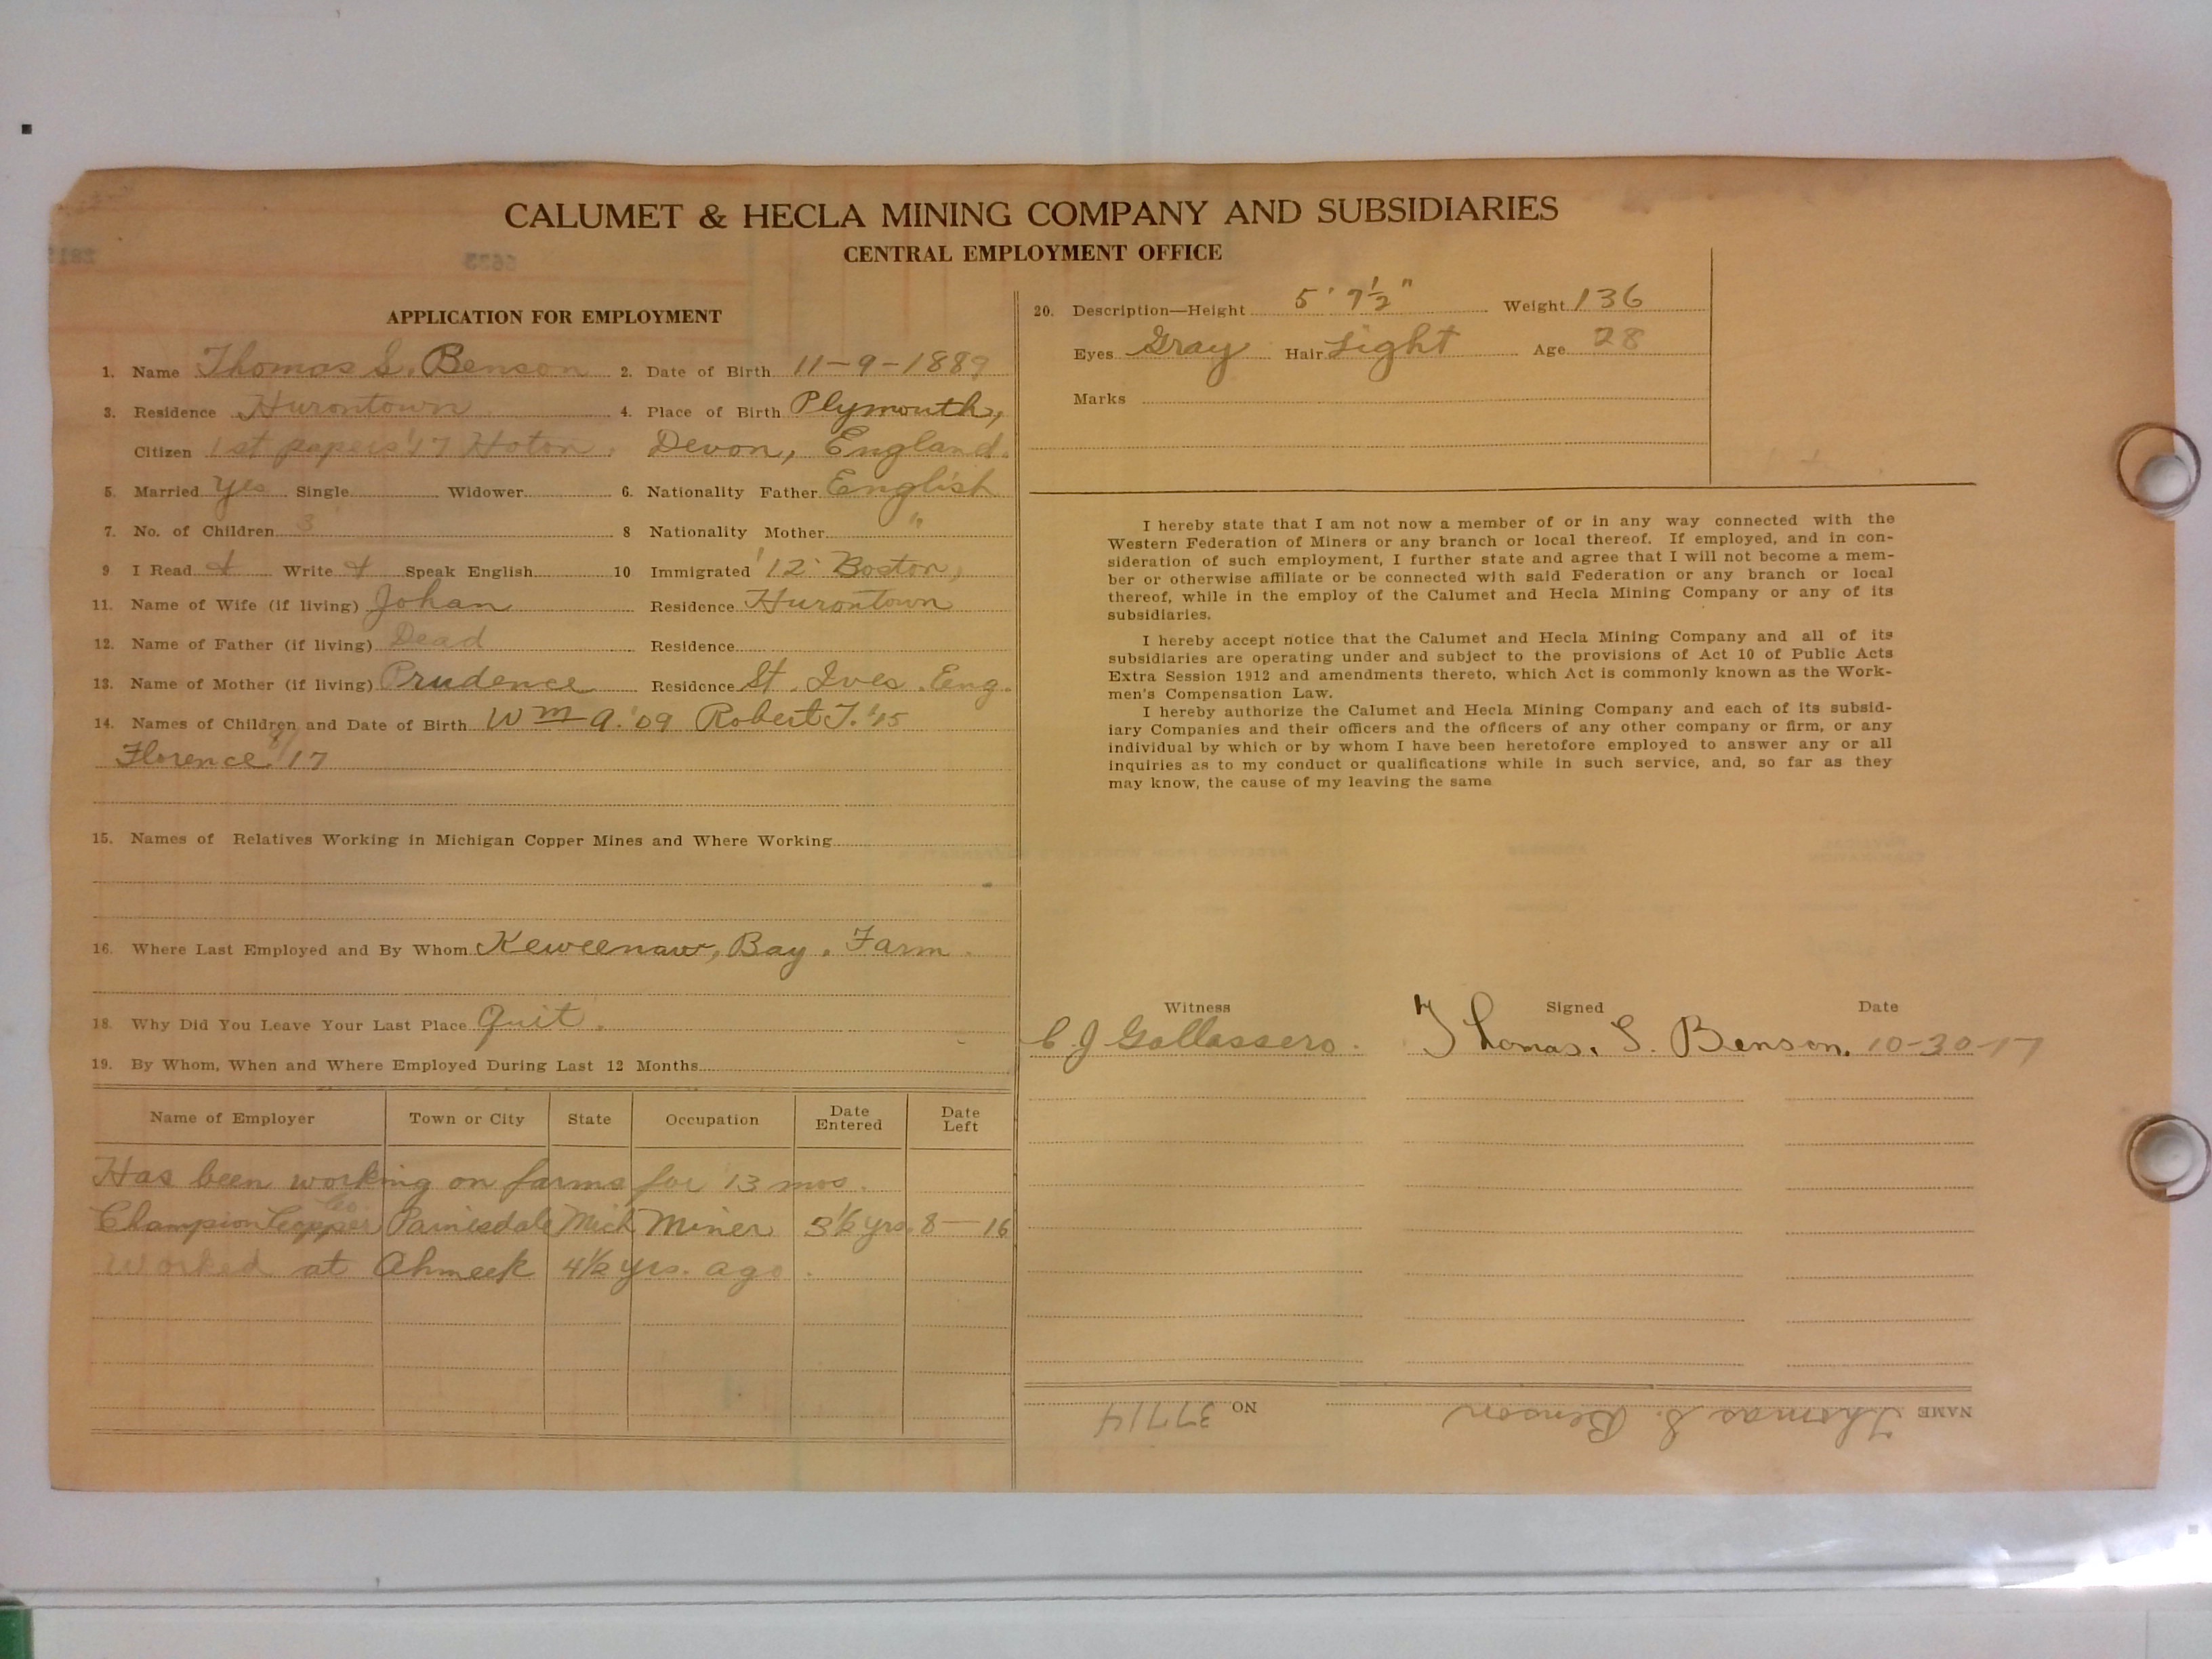 CALUMET & HECLA MINING COMPANY AND SUBSIDIARIES
CENTRAL EMPLOYMENT OFFICE
APPLICATION FOR EMPLOYMENT
1. Name Thomas S. Benson 2. Date of Birth 11-9-1889
3. Residence Hurontown 4. Place of Birth Plymouth,
Citizen 1st papers '17 Hoton. Devon, England.
5. Married Yes Single Widower 6. Nationality Father English
7. No. of Children 3 8 Nationality Mother "
9 I Read + Write + Speak English 10 Immigrated '12 Boston,
11. Name of Wife (if living) Johan Residence Hurontown
12. Name of Father (if living) Dead Residence
13. Name of Mother (if living) Prudence Residence St. Ives. Eng.
14. Names of Children and Date of Birth Wm A. '09 Robert T. '15
Florence 8/17
15. Names of Relatives Working in Michigan Copper Mines and Where Working
16. Where Last Employed and By Whom Keweenaw, Bay. Farm.
18. Why Did You Leave Your Last Place Quit.
19. By Whom, When and Where Employed During Last 12 Months
Name of Employer Town or City State Occupation Date Entered Date Left
Has been working on farms for 13 mos.
Champion Copper Co. Painesdale Mich Miner 3½ yrs. 8-16
Worked at Ahmeek 4½ yrs. ago.
20. Description—Height 5' 7½" Weight 136
Eyes Gray Hair Light Age 28
Marks
I hereby state that I am not now a member of or in any way connected with the
Western Federation of Miners or any branch or local thereof. If employed, and in con-
sideration of such employment, I further state and agree that I will not become a mem-
ber or otherwise affiliate or be connected with said Federation or any branch or local
thereof, while in the employ of the Calumet and Hecla Mining Company or any of its
subsidiaries.
I hereby accept notice that the Calumet and Hecla Mining Company and all of its
subsidiaries are operating under and subject to the provisions of Act 10 of Public Acts
Extra Session 1912 and amendments thereto, which Act is commonly known as the Work-
men's Compensation Law.
I hereby authorize the Calumet and Hecla Mining Company and each of its subsid-
iary Companies and their officers and the officers of any other company or firm, or any
individual by which or by whom I have been heretofore employed to answer any or all
inquiries as to my conduct or qualifications while in such service, and, so far as they
may know, the cause of my leaving the same
Witness Signed Date
C. J. Gallassero. Thomas. S. Benson. 10-30-17
NAME Thomas S. Benson NO 37714